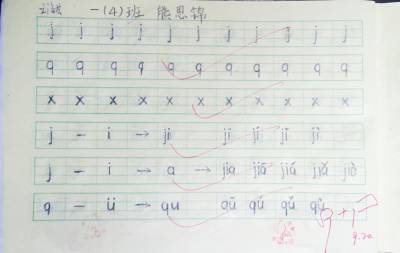 一(4)班 熊思锦
j j j j j j j j j j j
q q q q q q q q q q q
x x x x x x x x x x x
j - i → ji jī jí jǐ jì
j - i - a → jiā jiá jiǎ jià
q - ü → qu qū qú qǔ qù